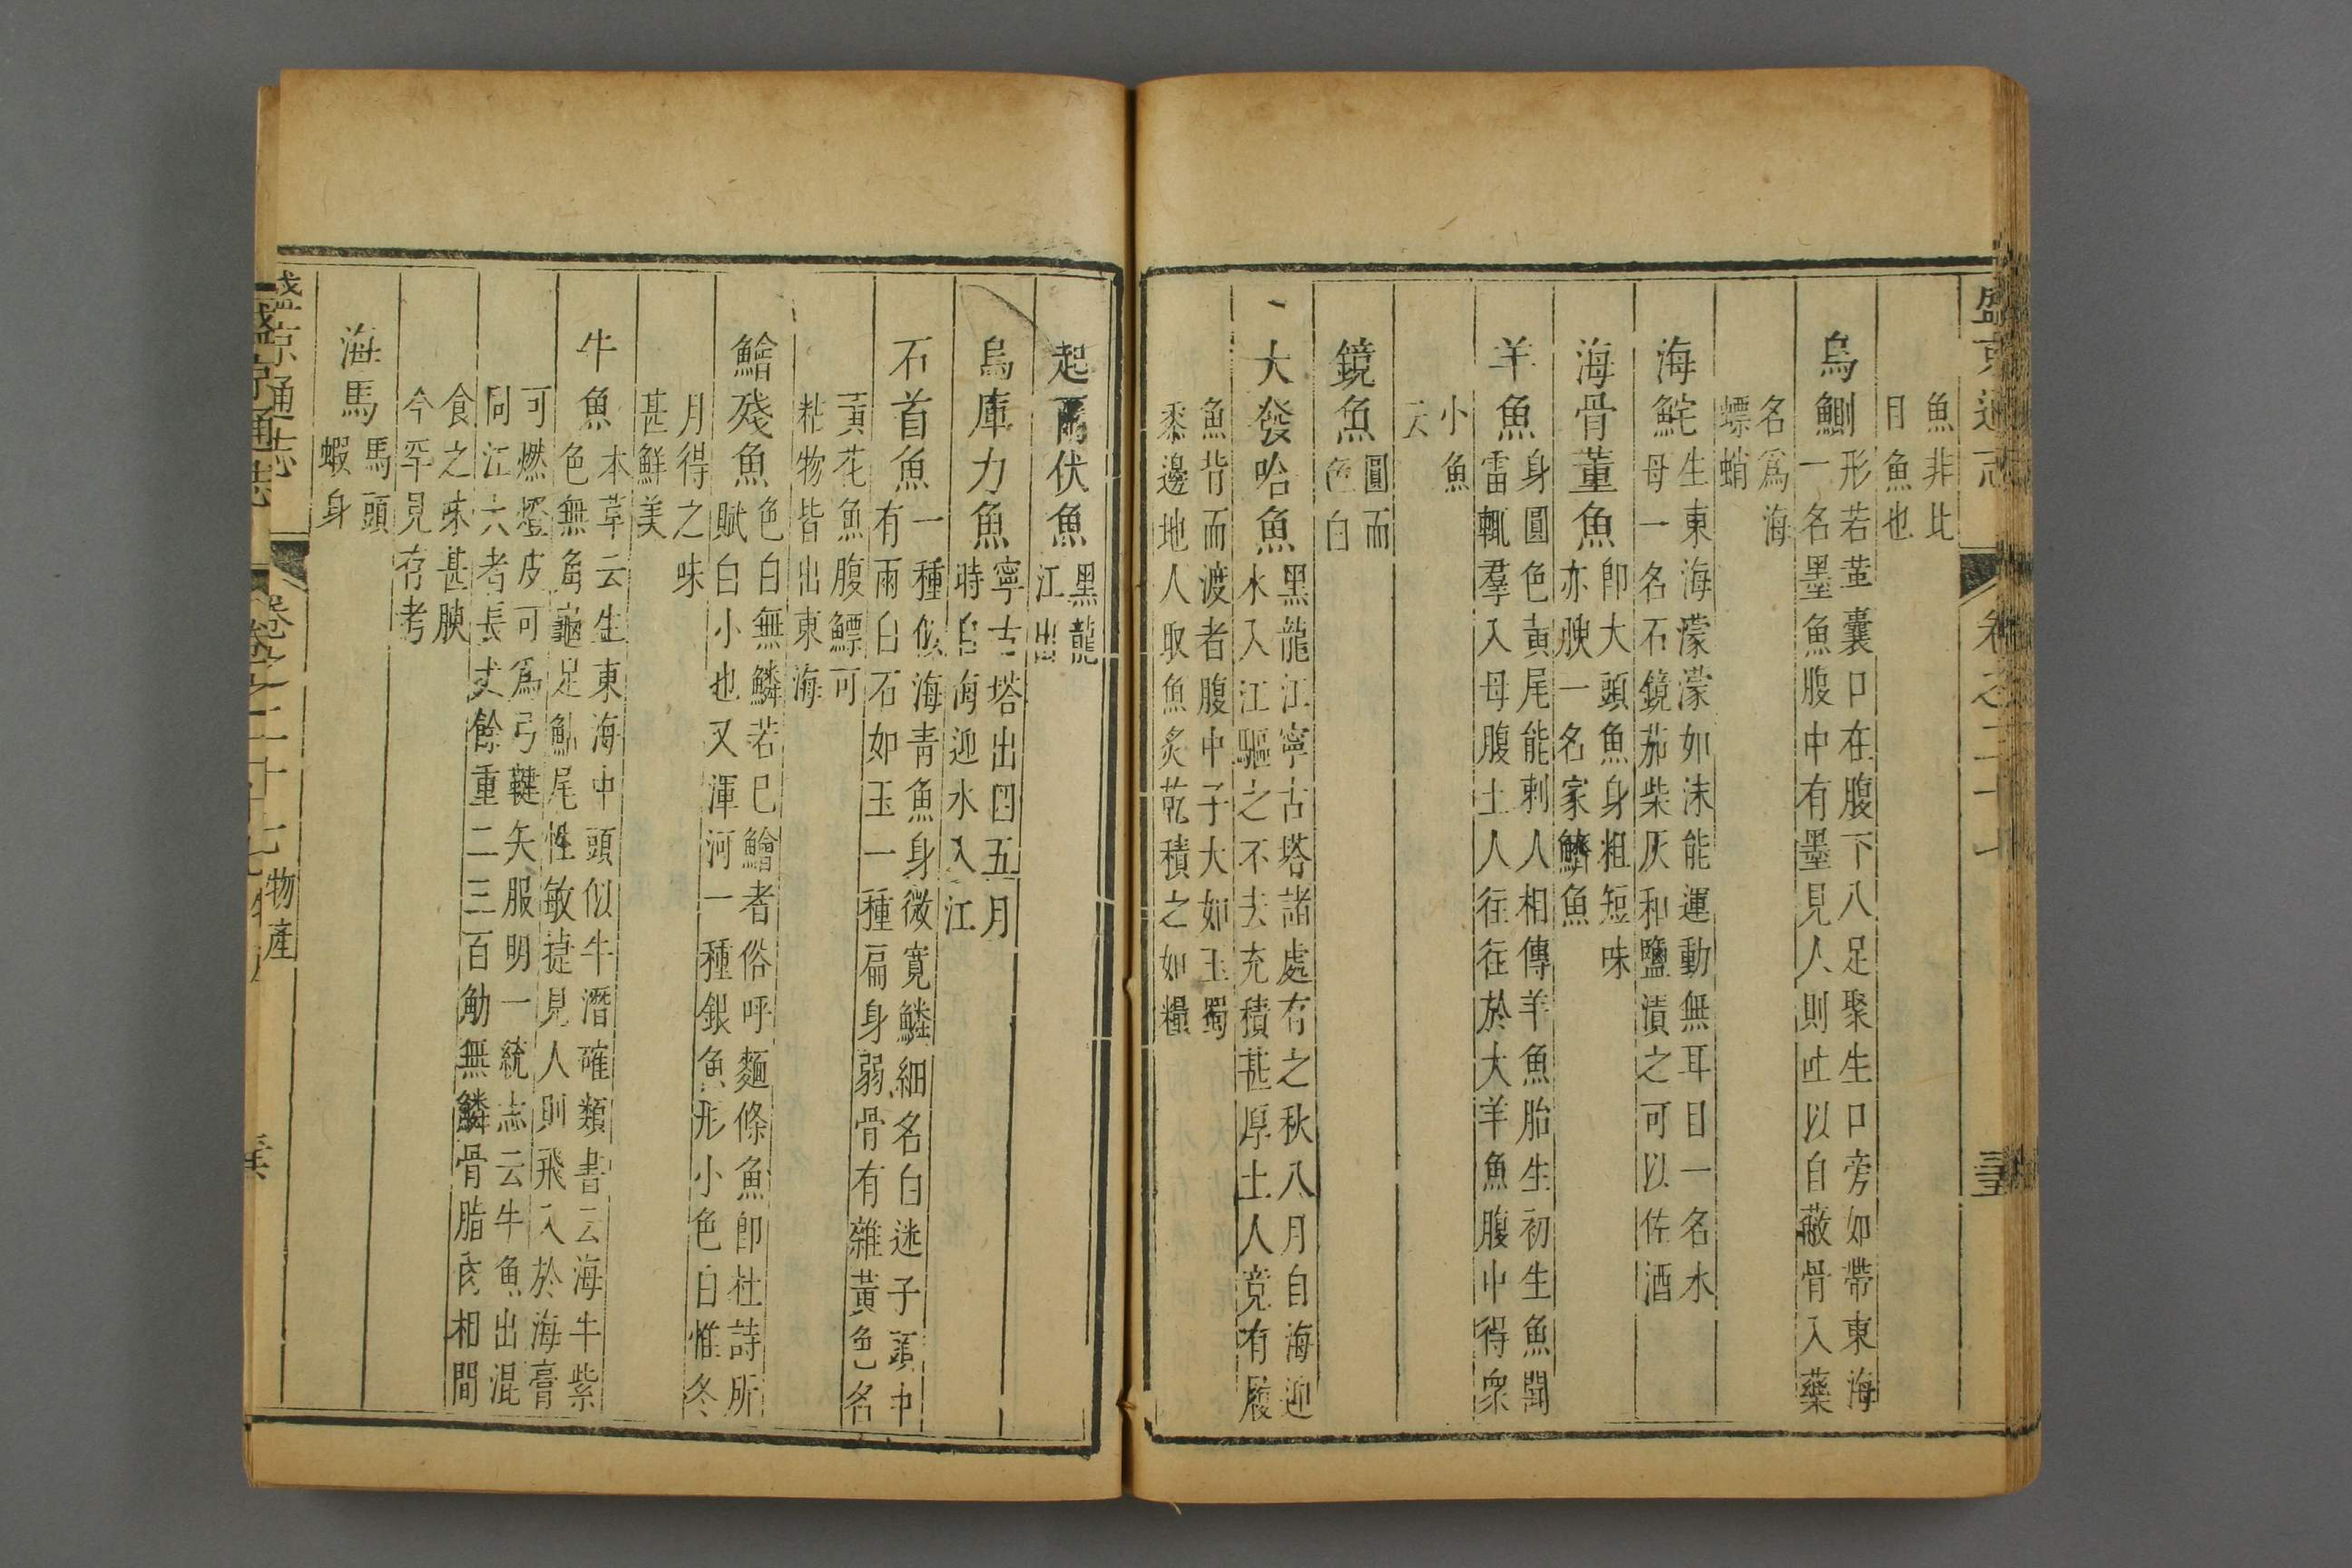 盛京通志 卷之二十七
魚非比
目魚也
烏鰂
形若革囊口在腹下八足聚生口旁如帶東海
一名墨魚腹中有墨見人則吐以自蔽骨入藥
名爲海
螵蛸
海䱇
生東海濛濛如沫能運動無耳目一名水
母一名石鏡茄柴灰和鹽漬之可以佐酒
海骨董魚
卽大頭魚身粗短味
亦腴一名家鱭魚
羊魚
身圓色黃尾能刺人相傳羊魚胎生初生魚聞
雷輒羣入母腹土人往往於大羊魚腹中得衆
小魚
云
鏡魚
圓而
色白
大發哈魚
黑龍江寧古塔諸處有之秋八月自海迎
水入江驅之不去充積甚厚土人竟有履
魚背而渡者腹中子大如玉蜀
黍邊地人取魚炙乾積之如糧
起爾伏魚
黑龍
江出
烏庫力魚
寧古塔出四五月
時自海迎水入江
石首魚
一種似海青魚身微寬鱗細名白迷子頭中
有兩白石如玉一種扁身弱骨有雜黃色名
黃花魚腹鰾可
粘物皆出東海
鱠殘魚
色白無鱗若已鱠者俗呼麵條魚卽杜詩所
賦白小也又渾河一種銀魚形小色白惟冬
月得之味
甚鮮美
牛魚
本草云生東海中頭似牛潛確類書云海牛紫
色無角龜足鮎尾性敏捷見人則飛入於海膏
可燃燈皮可爲弓鞬矢服明一統志云牛魚出混
同江大者長丈餘重二三百觔無鱗骨脂肉相間
食之味甚腴
今罕見存考
海馬
馬頭
蝦身
盛京通志 卷之二十七 物產